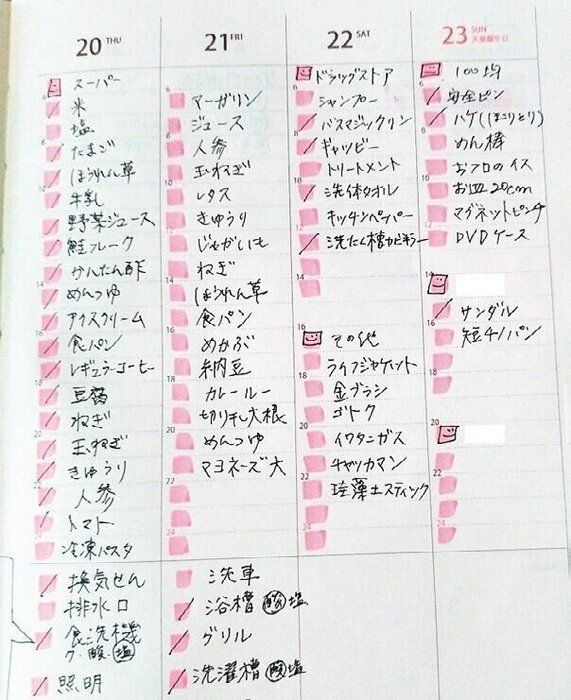 20 THU
スーパー
米
塩
たまご
ほうれん草
牛乳
野菜ジュース
鮭フレーク
かんたん酢
めんつゆ
アイスクリーム
食パン
レギュラーコーヒー
豆腐
ねぎ
玉ねぎ
きゅうり
人参
トマト
冷凍パスタ
換気せん
排水口
食洗機
ク・酸・塩
照明
21 FRI
マーガリン
ジュース
人参
玉ねぎ
レタス
きゅうり
じゃがいも
ねぎ
ほうれん草
食パン
めかぶ
納豆
カレールー
切り干し大根
めんつゆ
マヨネーズ大
洗車
浴槽 酸 塩
グリル
洗濯槽 酸 塩
22 SAT
ドラッグストア
シャンプー
バスマジックリン
ギャツビー
トリートメント
洗体タオル
キッチンペーパー
洗たく槽カビキラー
その他
ライフジャケット
金ブラシ
ゴトク
イワタニガス
チャッカマン
珪藻土スティック
23 SUN
天皇誕生日
100均
安全ピン
ハケ(ほこりとり)
めん棒
おフロのイス
お皿20cm
マグネットピンチ
DVDケース
サンダル
短チノパン